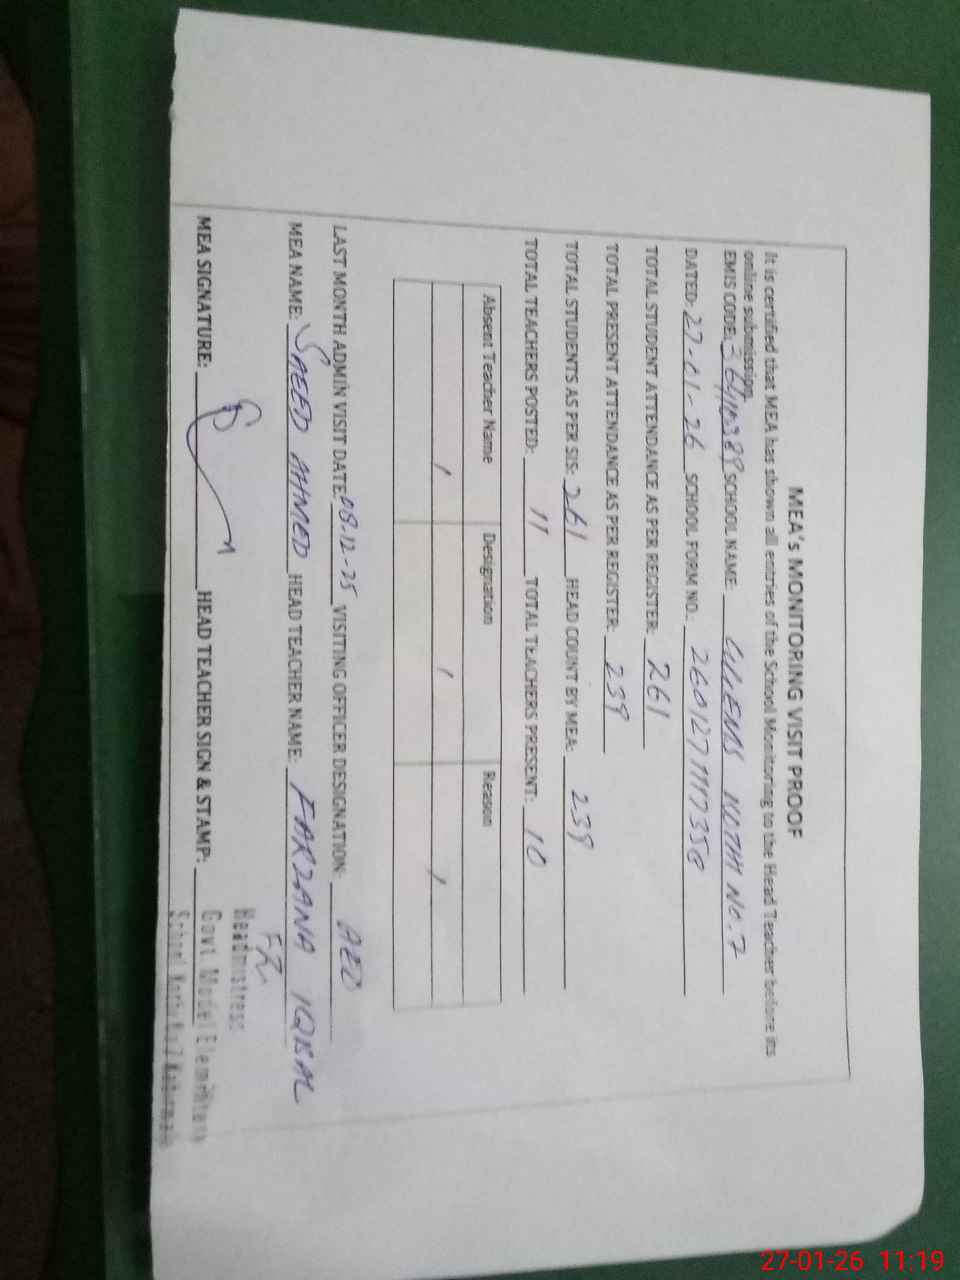 MEA's MONITORING VISIT PROOF
It is certified that MEA has shown all entries of the School Monitoring to the Head Teacher before its
online submission
EMIS CODE: SCHOOL NAME: NOTHY NO.7
DATED: 27-01-26 SCHOOL FORM NO.:
TOTAL STUDENT ATTENDANCE AS PER REGISTER: 261
TOTAL PRESENT ATTENDANCE AS PER REGISTER: 239
TOTAL STUDENTS AS PER SIS: 261 HEAD COUNT BY MEA: 239
TOTAL TEACHERS POSTED: 11 TOTAL TEACHERS PRESENT: 10
Absent Teacher Name Designation Reason
LAST MONTH ADMIN VISIT DATE: 08-12-25 VISITING OFFICER DESIGNATION: AEO
MEA NAME: SAEED AHMED HEAD TEACHER NAME: FARZANA IQBAL
MEA SIGNATURE: HEAD TEACHER SIGN & STAMP:
Headmistress
Govt. Model Elementary
School
27-01-26 11:19